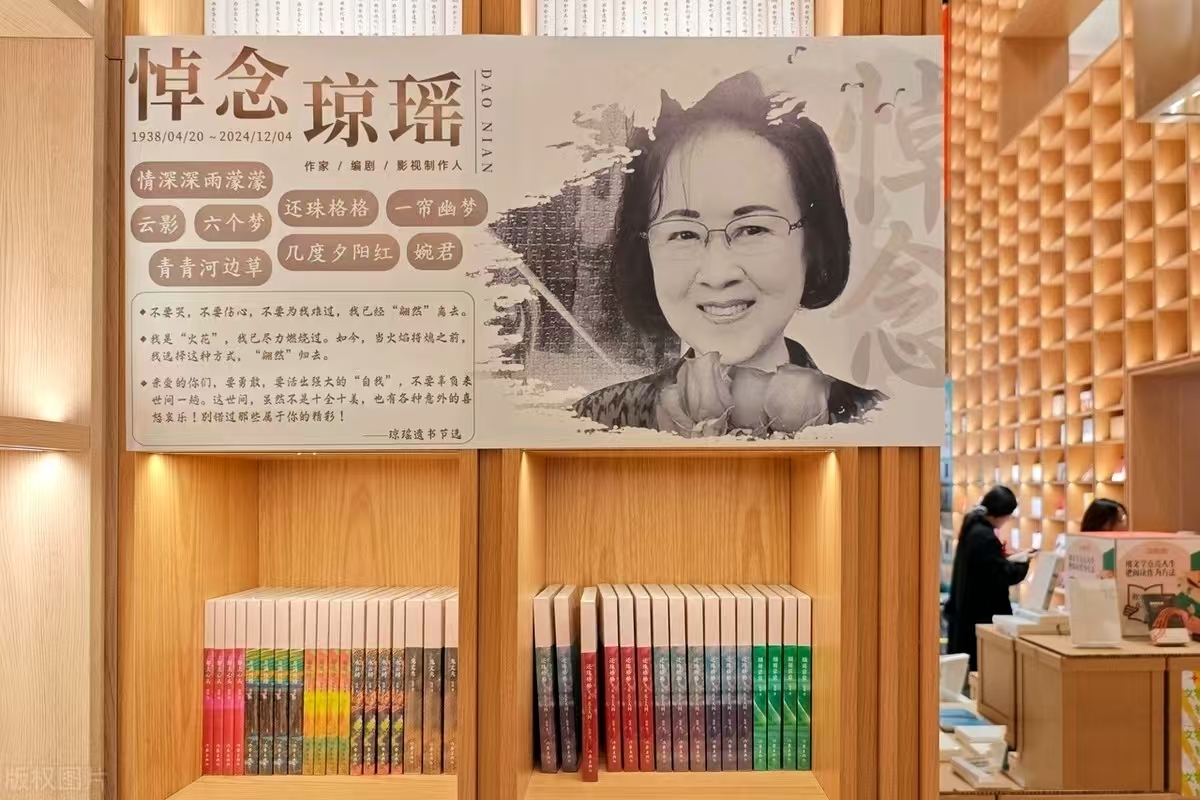 悼念琼瑶
DAO NIAN
1938/04/20 ~ 2024/12/04
作家 / 编剧 / 影视制作人
情深深雨濛濛
还珠格格
一帘幽梦
云影
六个梦
几度夕阳红
婉君
青青河边草
不要哭，不要伤心，不要为我难过，我已经“翩然”离去。
我是“火花”，我已尽力燃烧过。如今，当火焰将熄之前，
我选择这种方式，“翩然”归去。
亲爱的你们，要勇敢，要活出强大的“自我”，不要辜负来
世间一趟。这世间，虽然不是十全十美，也有各种意外的喜
怒哀乐！别错过那些属于你的精彩！
——琼瑶遗书节选
悼念
用文学点亮人生
把阅读作为方法
版权图片